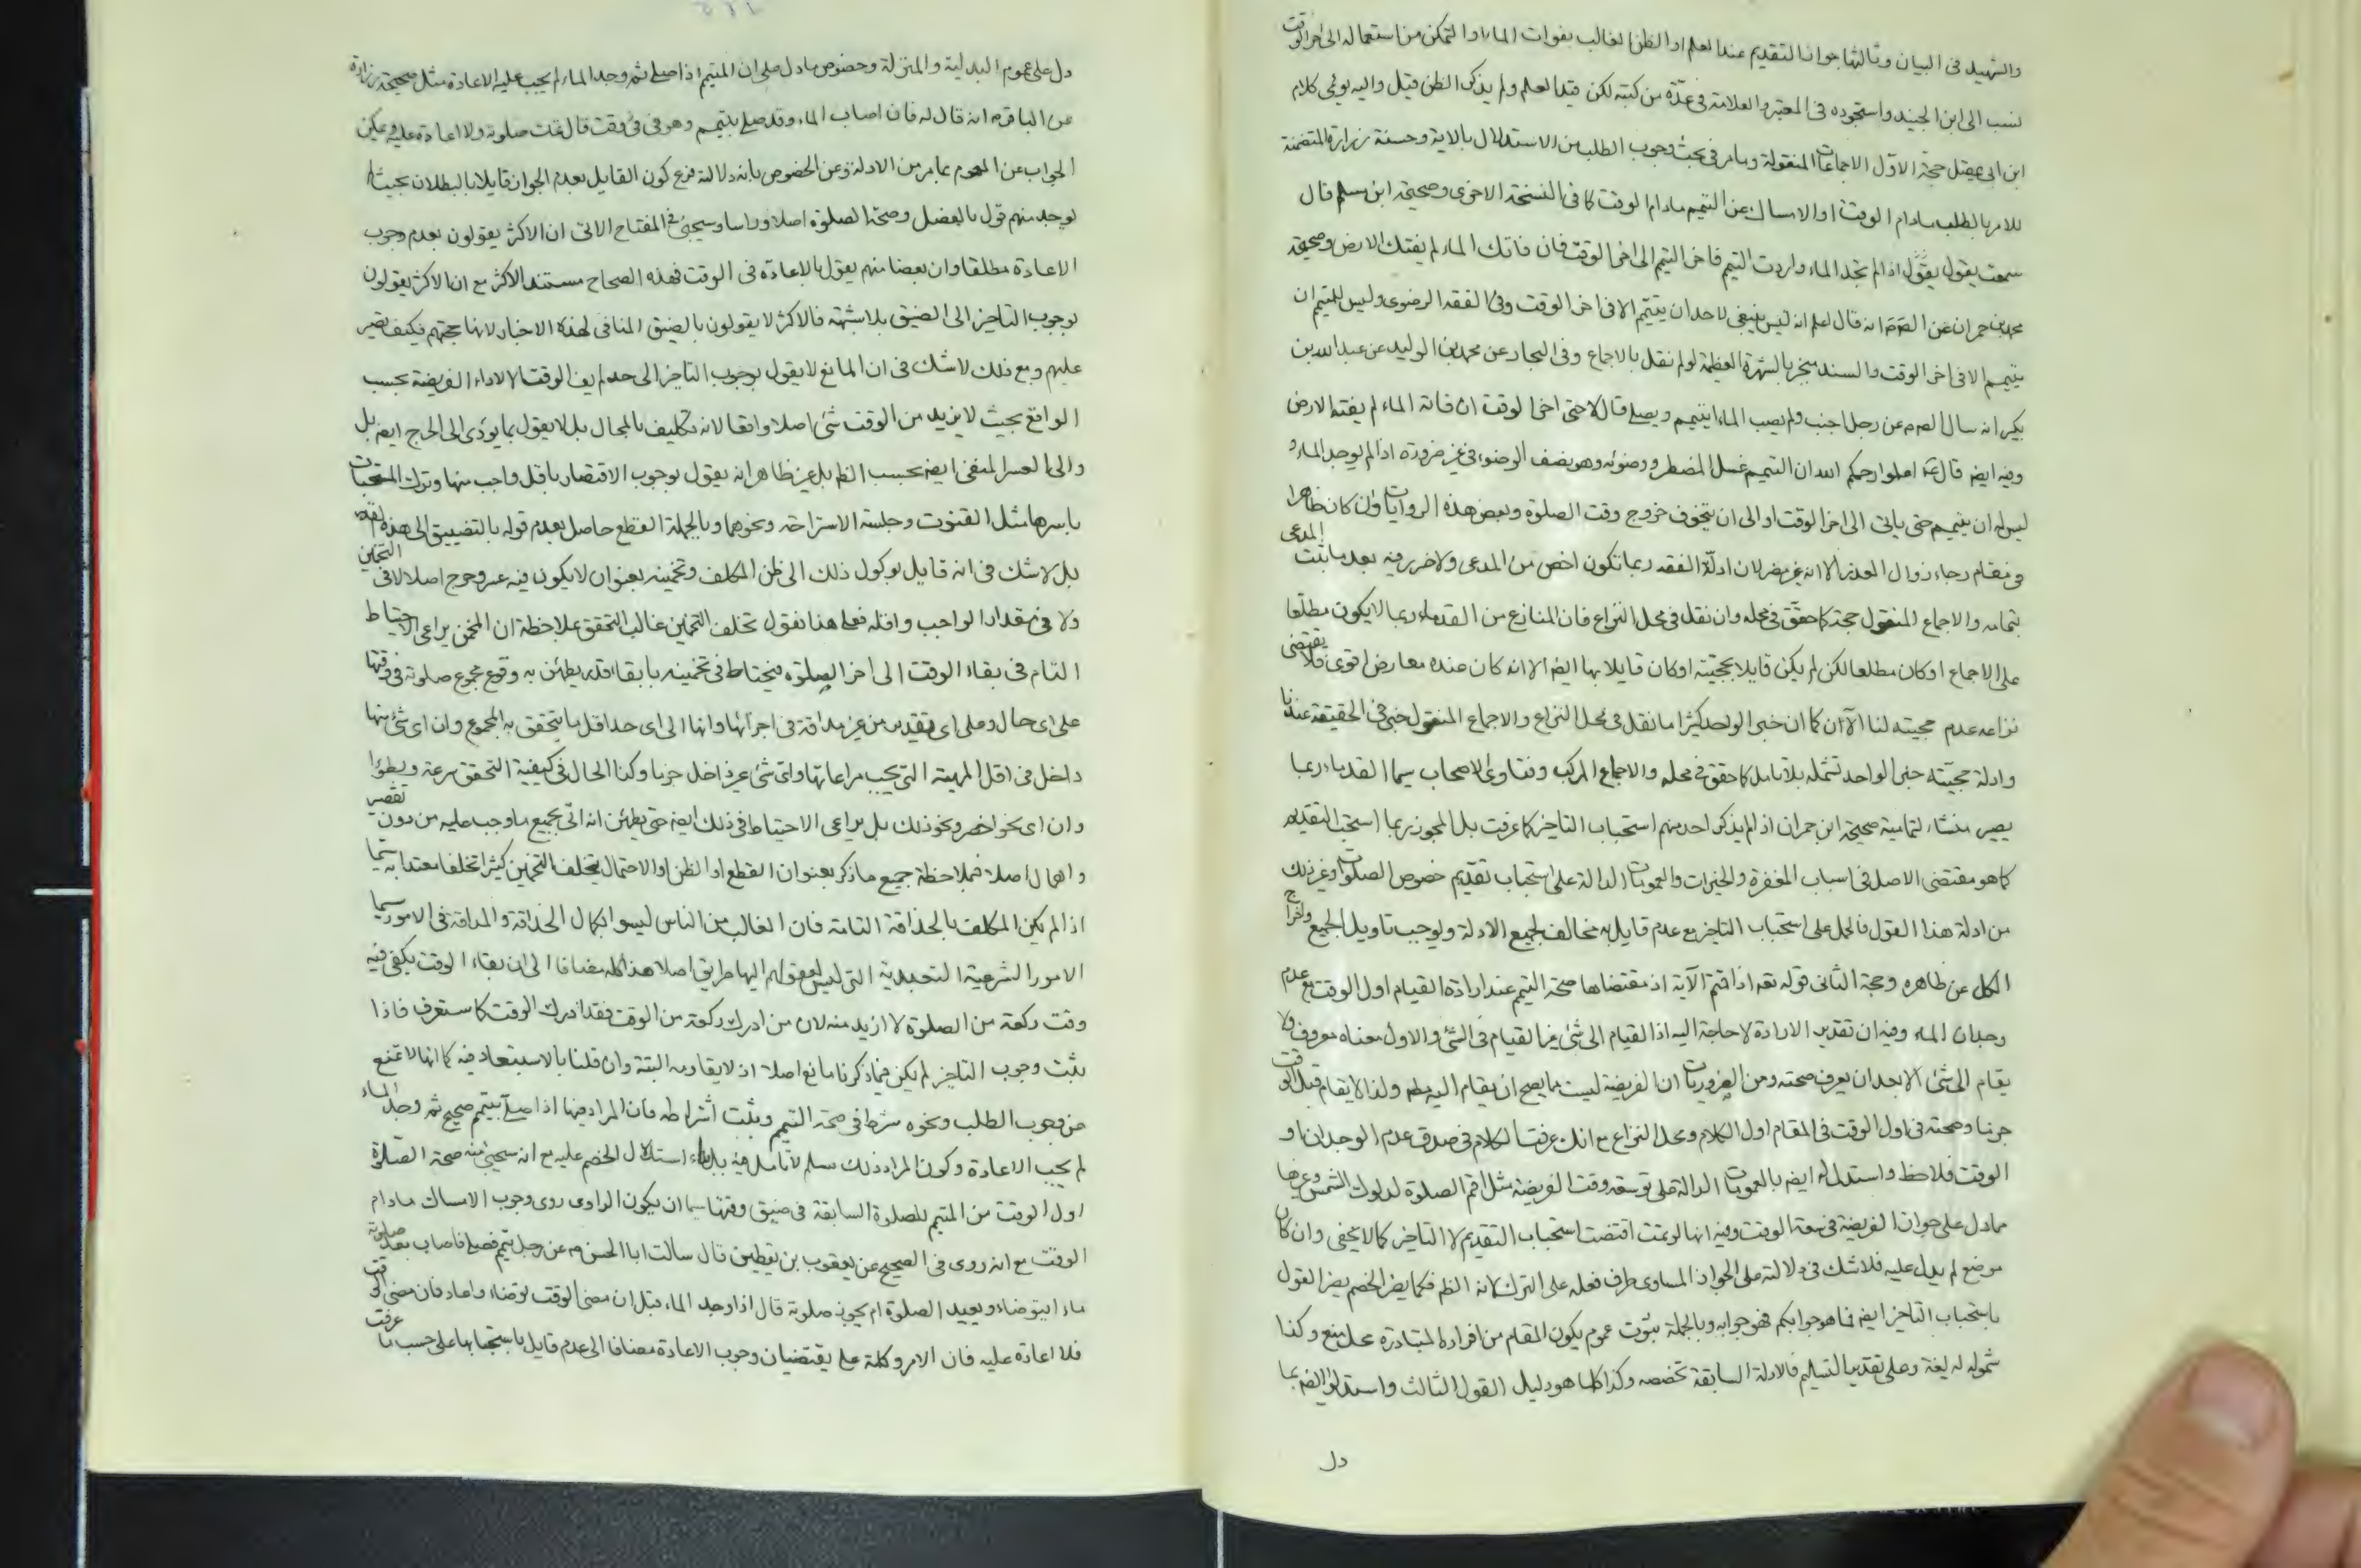 والشهيد في البيان وثالثها جواز التقديم عند العلم او الظن الغالب بفوات الماء او التمكن من استعماله الى اخر الوقت
نسب الى ابن الجنيد واستجوده في المعتبر والعلامة في عدّة من كتبه لكن قيد العلم ولم يذكر الظن قيل واليه يومى كلام
ابن ابى عقيل حجّة الاوّل الاجماعات المنقولة وما مر في بحث وجوب الطلب من الاستدلال بالاية وحسنة زرارة المتضمنة
للامر بالطلب مادام الوقت او الامساك عن التيمم مادام الوقت كما في النسخة الاخرى وصحيحة ابن مسلم قال
سمعته يقول اذا لم تجد الماء واردت التيمم فاخر التيمم الى اخر الوقت فان فاتك الماء لم يفتك الارض وصحيحة
محمد بن حمران عن الصادق انه قال اعلم انه ليس ينبغى لاحد ان يتيمّم الا في اخر الوقت وفى الفقه الرضوى وليس للمتيمم ان
يتيمم الا في اخر الوقت والسند منجبر بالشهرة العظيمة لو لم نقل بالاجماع وفى البحار عن محمد بن الوليد عن عبد الله بن
بكير انه سال الصم عن رجل اجنب ولم يصب الماء ايتيمم ويصلى قال لا حتى اخر الوقت ان فاته الماء لم يفته الارض
وفيه ايضا قال اعلموا رحمكم الله ان التيمم غسل المضطر ووضوئه وهو نصف الوضوء في غير ضرورة اذا لم يوجد الماء و
ليس له ان يتيمم حتى ياتى الى اخر الوقت او الى ان يتخوف خروج وقت الصلوة وبعض هذه الروايات وان كان ظاهرا
في مقام رجاء زوال العذر الا انه غير مضر لان ادلّة الفقه ربما تكون اخص من المدعى ولا ضرر فيه بعد ما ثبت المدعى
بتمامه والاجماع المنقول حجة كما حقّق في محله وان نقل في محل النزاع فان المنازع من القدماء ربما لا يكون مطلعا
على الاجماع او كان مطلعا لكن لم يكن قايلا بحجيّته او كان قايلا بها ايضا الا انه كان عنده معارض اقوى فلا يقتضى
نزاعه عدم حجيته لنا الآن كما ان خبر الواحد كثيرا ما نقل في محل النزاع والاجماع المنقول خبر في الحقيقة عندنا
وادلة حجيّته خبر الواحد تشمله بلا تامل كما حقق في محله والاجماع المركب وفتاوى الاصحاب سيما القدماء ربما
يصير منشاء لتمامية صحيحة ابن حمران اذ لم يذكر احد منهم استحباب التاخير كما عرفت بل المجوز ربما استحب التقديم
كما هو مقتضى الاصل في اسباب المغفرة والخيرات والعمومات الدالة على استحباب تقديم خصوص الصلوات وغير ذلك
من ادلة هذا القول فالحمل على استحباب التاخير مع عدم قايل به مخالف لجميع الادلة ويوجب تاويل الجميع واخراج
الكل عن ظاهره وحجة الثانى قوله تعه اذا قمتم الآية اذ مقتضاها صحة التيمم عند ارادة القيام اول الوقت مع عدم
وجدان الماء وفيه ان تقدير الارادة لا حاجة اليه اذ القيام الى شئ غير القيام في الشئ والاول معناه معروف ولا
يقام الى شئ الا بعد ان يعرف صحته ومن الضروريات ان الفريضة ليست بما يصح ان يقام اليه مط ولذا لا يقام قبل الوقت
جزما وصحته في اول الوقت في المقام اول الكلام ومحل النزاع مع انك عرفت الكلام في صدق عدم الوجدان او
الوقت فلاحظ واستدل له ايضا بالعمومات الدالة على توسعة وقت الفريضة مثل اقم الصلوة لدلوك الشمس وغيرها
مما دل على جواز الفريضة في سعة الوقت وفيه انها لو تمت اقتضت استحباب التقديم لا التاخير كما لا يخفى وان كان
موضع لم يدل عليه فلا شك في دلالته على الجواز المساوى طرف فعله على الترك كما انه الظم فكما يضر الخصم يضر القول
باستحباب التاخير ايضا فما هو جوابكم فهو جوابه وبالجملة ثبوت عموم يكون المقام من افراده المتبادرة محل منع وكذا
شموله له لغة وعلى تقدير التسليم فالادلة السابقة تخصصه وكذا كلما هو دليل القول الثالث واستدلوا ايضا بما
دل
دل على عموم البدلية والمنزلة وخصوص ما دل على ان المتيمم اذا صلى ثم وجد الماء لم يجب عليه الاعادة مثل صحيحة زرارة
عن الباقر انه قال له فان اصاب الماء وقد صلى بتيمم وهو في وقت قال تمت صلوته ولا اعادة عليه ويمكن
الجواب عن العموم بما مر من الادلة وعن الخصوص بانه دلالته فرع كون القايل بعدم الجواز قايلا بالبطلان بحيث لا
يوجد منهم قول بالفصل وصحة الصلوة اصلا وراسا وسيجئ في المفتاح الاتى ان الاكثر يقولون بعدم وجوب
الاعادة مطلقا وان بعضا منهم يقول بالاعادة في الوقت فهذه الصحاح مستند الاكثر مع ان الاكثر يقولون
بوجوب التاخير الى الضيق بلا شبهة فالاكثر لا يقولون بالضيق المنافى لهذه الاخبار لانها حجتهم فكيف تصير
عليهم ومع ذلك لا شك في ان المانع لا يقول بوجوب التاخير الى حد لم يف الوقت الا لاداء الفريضة بحسب
الواقع بحيث لا يزيد من الوقت شئ اصلا واقعا لانه تكليف بالمحال بل لا يقول بما يؤدى الى الحرج ايضا بل
والى العسر المنفى ايضا بحسب الظم بل غير ظاهر انه يقول بوجوب الاقتصار باقل واجب منها وترك المستحبات
باسرها مثل القنوت وجلسة الاستراحة ونحوهما وبالجملة القطع حاصل بعدم قوله بالتضييق الى هذه
بل لا شك في انه قايل بوكول ذلك الى ظن المكلف وتخمينه بعنوان لا يكون فيه عسر وحرج اصلا لا في التخمين
ولا في مقدار الواجب واقله فعلى هذا نقول تخلف التخمين غالب التحقق بملاحظة ان المخمن يراعى الاحتياط
التام في بقاء الوقت الى اخر الصلوة فيحتاط في تخمينه بابقاء قدر يطمئن به وقوع مجموع صلوته في وقتها
على اى حال وعلى اى تقدير من غير مداقة في اجزائها وانها الى اى حد اقل ما يتحقق به المجموع وان اى شئ منها
داخل في اقل المهية التى يجب مراعاتها واى شئ غير داخل جزما وكذا الحال في كيفية التحقق سرعة وبطؤا
وان اى نحو اخصر ونحو ذلك بل يراعى الاحتياط في ذلك ايضا حتى يطمئن انه اتى بجميع ما وجب عليه من دون تقصير
واهمال اصلا فبملاحظة جميع ما ذكر بعنوان القطع او الظن او الاحتمال يتخلف التخمين كثيرا تخلفا معتدا به سيما
اذا لم يكن المكلف بالحذاقة التامة فان الغالب من الناس ليسوا بكمال الحذاقة والمداقة في الامور سيما
الامور الشرعية التعبدية التى ليس لعقولهم اليها طريق اصلا هذا كله مضافا الى ان بقاء الوقت يكفى فيه
وقت ركعة من الصلوة لا ازيد منه لان من ادرك ركعة من الوقت فقد ادرك الوقت كما ستعرف فاذا
ثبت وجوب التاخير لم يكن فيما ذكرنا مانع اصلا اذ لا يقاومه البتة وان قلنا بالاستبعاد فيه كما انها لا تمنع
من وجوب الطلب ونحوه شرطا في صحة التيمم وثبت اشتراطه فان المراد منها اذا صلى بتيمم صحيح ثم وجد الماء
لم يجب الاعادة وكون المراد ذلك مسلم لا تأمل فيه استدلال الخصم عليه مع انه سيجئ منه صحة الصلوة
اول الوقت من المتيمم للصلوة السابقة في ضيق وقتها سيما ان يكون الراوى روى وجوب الامساك مادام
الوقت مع انه روى في الصحيح عن يعقوب بن يقطين قال سالت ابا الحسن عن رجل تيمم فصلى فاصاب بعد صلوته
ماء ايتوضاء ويعيد الصلوة ام يجوز صلوته قال اذا وجد الماء قبل ان يمضى الوقت توضاء واعاد فان مضى الوقت
فلا اعادة عليه فان الامر وكلمة على يقتضيان وجوب الاعادة مضافا الى عدم قايل باستحبابها على حسب ما عرفت